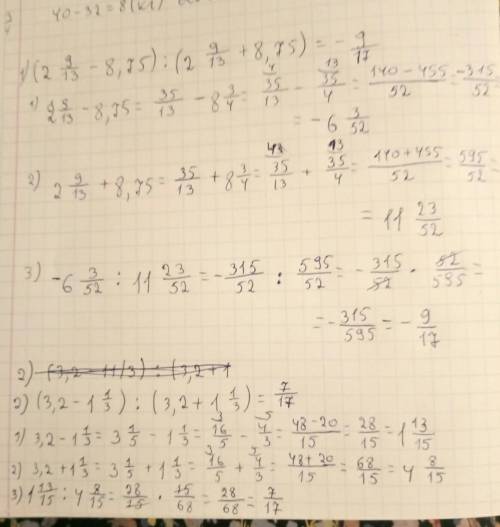 40-32=8(кг)
1) (2 9/13 - 8,75) : (2 9/13 + 8,75) = - 9/17
1) 2 9/13 - 8,75 = 35/13 - 8 3/4 = 35/13 - 35/4 = (140-455)/52 = -315/52 =
= -6 3/52
2) 2 9/13 + 8,75 = 35/13 + 8 3/4 = 35/13 + 35/4 = (140+455)/52 = 595/52 =
= 11 23/52
3) -6 3/52 : 11 23/52 = -315/52 : 595/52 = -315/52 · 52/595 =
= -315/595 = -9/17
2) (3,2 - 11/3) : (3,2+1
2) (3,2 - 1 1/3) : (3,2 + 1 1/3) = 7/17
1) 3,2 - 1 1/3 = 3 1/5 - 1 1/3 = 16/5 - 4/3 = (48-20)/15 = 28/15 = 1 13/15
2) 3,2 + 1 1/3 = 3 1/5 + 1 1/3 = 16/5 + 4/3 = (48+20)/15 = 68/15 = 4 8/15
3) 1 13/15 : 4 8/15 = 28/15 · 15/68 = 28/68 = 7/17